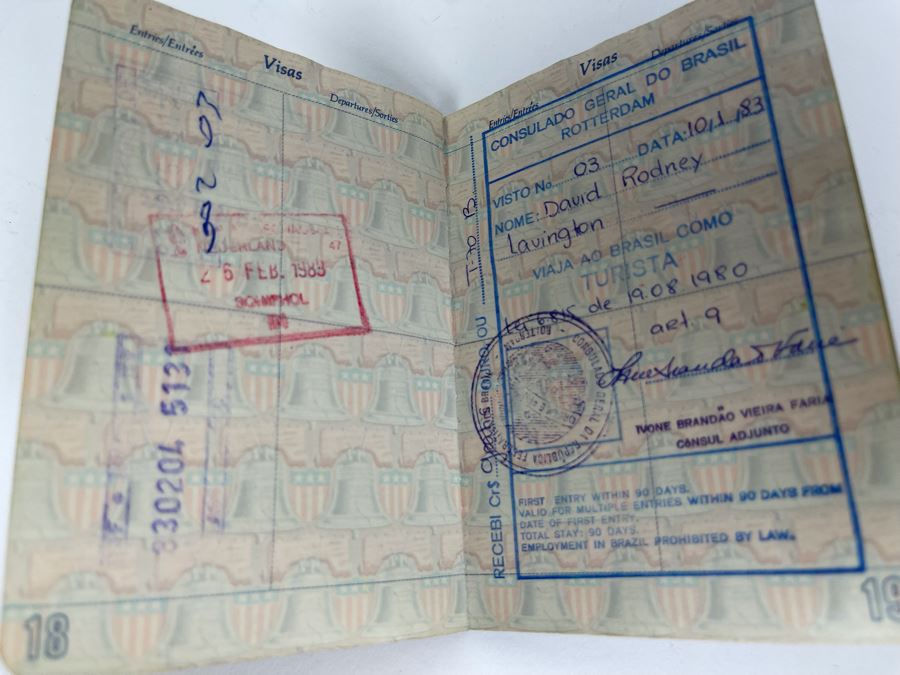 Entries/Entrées
Visas
Departures/Sorties
26 FEB. 1983
SCHIPHOL
830204 513
18
Entries/Entrées
Visas
Departures/Sorties
CONSULADO GERAL DO BRASIL
ROTTERDAM
VISTO No. 03 DATA: 10/1/83
NOME: David Rodney
Lavington
VIAJA AO BRASIL COMO
TURISTA
Lei 6.815 de 19.08 1980
art. 9
IVONE BRANDÃO VIEIRA FARIA
CONSUL ADJUNTO
FIRST ENTRY WITHIN 90 DAYS.
VALID FOR MULTIPLE ENTRIES WITHIN 90 DAYS FROM
DATE OF FIRST ENTRY.
TOTAL STAY: 90 DAYS.
EMPLOYMENT IN BRAZIL PROHIBITED BY LAW.
RECEBI Cr$ OURO, OU T-70 B
19